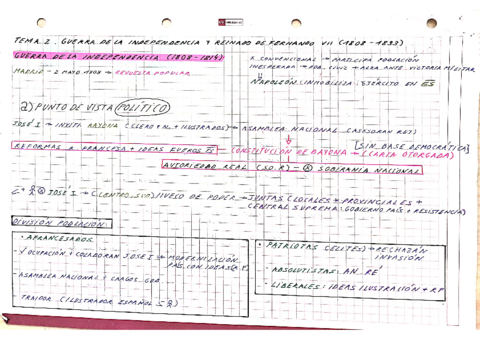 TEMA 2. GUERRA DE LA INDEPENDENCIA Y REINADO DE FERNANDO VII (1808 - 1833)
GUERRA DE LA INDEPENDENCIA (1808 - 1814)
MADRID - 2 MAYO 1808 → REVUELTA POPULAR
X CONVENCIONAL → PARTICIPA POBLACIÓN
INESPERADO → POB. CIVIL + ALZA ANTE VICTORIA MILITAR
NAPOLEÓN INMOVILIZA EJÉRCITO EN ES
a) PUNTO DE VISTA POLÍTICO
JOSÉ I → INVITA BAYONA (CLERO + N. + ILUSTRADOS) → ASAMBLEA NACIONAL (ASESORAN REY)
REFORMAS A FRANCESA + IDEAS
CONSTITUCIÓN DE BAYONA
[SIN BASE DEMOCRÁTICA]
(CARTA OTORGADA)
AUTORIDAD REAL (S.O.R) = SOBERANÍA NACIONAL
JOSÉ I → (CENTRO, SUR) (VACÍO DE PODER → JUNTAS (LOCALES + PROVINCIALES +
CENTRAL SUPREMA: GOBIERNO PAÍS + RESISTENCIA)
DIVISIÓN POBLACIÓN:
• AFRANCESADOS
- OCUPACIÓN Y COLABORAN JOSÉ I → MODERNIZACIÓN
PAÍS CON IDEAS
- ASAMBLEA NACIONAL Y CARGOS GOB
- TRAIDOR (ILUSTRADOR ESPAÑOL
• PATRIOTAS (ÉLITES) → RECHAZAN
INVASIÓN
- ABSOLUTISTAS: AN. RÉ
- LIBERALES: IDEAS ILUSTRACIÓN + RF